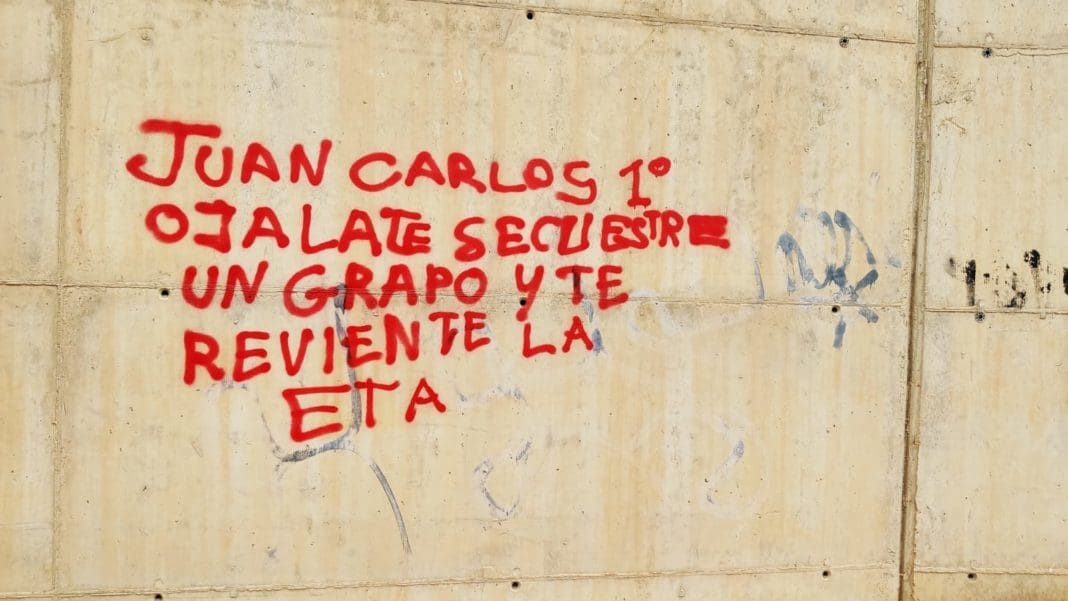 JUAN CARLOS 1º
OJALATE SECUESTRE
UN GRAPO Y TE
REVIENTE LA
ETA